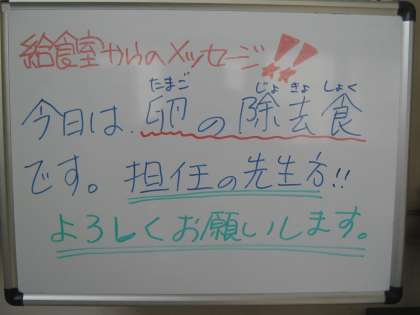 給食室からのメッセージ!!
たまご じょ きょ しょく
今日は、卵の除去食
です。担任の先生方!!
よろしくお願いします。